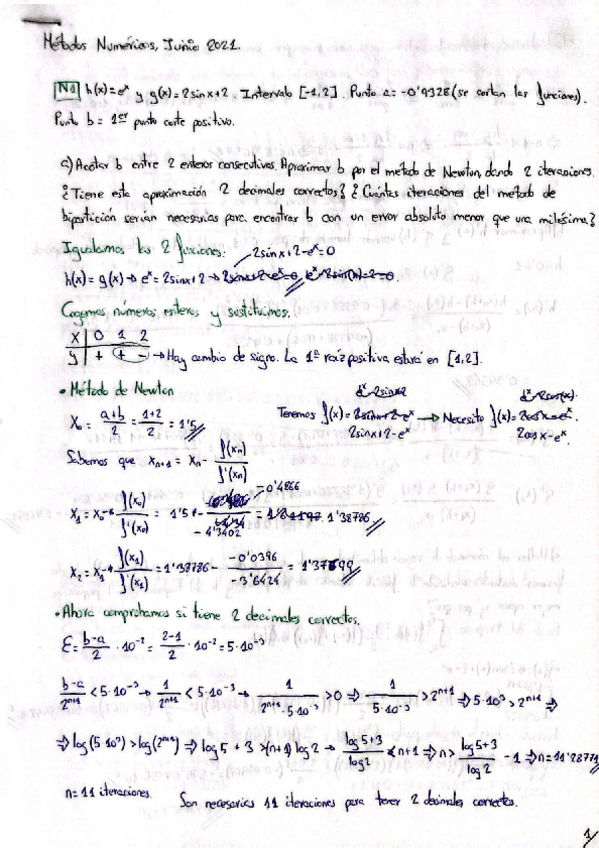 Métodos Numéricos, Junio 2021.
N1 h(x)=e^x y g(x)=2sinx+2. Intervalo [-1,2]. Punto a=-0'9328 (se cortan las funciones).
Punto b = 1er punto corte positivo.
a) Acotar b entre 2 enteros consecutivos. Aproximar b por el método de Newton dando 2 iteraciones.
¿Tiene esta aproximación 2 decimales correctos? ¿Cuántas iteraciones del método de
bipartición serían necesarias para encontrar b con un error absoluto menor que una milésima?
Igualamos las 2 funciones: 2sinx+2-e^x=0
h(x)=g(x) → e^x=2sinx+2 →
Cogemos números enteros y sustituimos.
x | 0 1 2
y | + + - → Hay cambio de signo. La 1ª raíz positiva estará en [1,2].
• Método de Newton
X₀ = (a+b)/2 = (1+2)/2 = 1'5 Tenemos f(x)= 2sinx+2-e^x → Necesito f'(x)= 2cosx-e^x.
Sabemos que Xn+1 = Xn - f(xn)/f'(xn)
X₁ = X₀ - f(x₀)/f'(x₀) = 1'5 - -0'4866/-4'3402 = 1'38786
X₂ = X₁ - f(x₁)/f'(x₁) = 1'38786 - -0'0396/-3'6424 = 1'37699
• Ahora comprobamos si tiene 2 decimales correctos.
Ɛ = (b-a)/2 · 10^-2 = (2-1)/2 · 10^-2 = 5·10^-3
(b-a)/2^(n+1) < 5·10^-3 → 1/2^(n+1) < 5·10^-3 → 1/(2^(n+1)·5·10^-3) > 0 ⇒ 1/(5·10^-3) > 2^(n+1) ⇒ 5·10^3 > 2^(n+1) ⇒
⇒ log(5·10^3) > log(2^(n+1)) ⇒ log5 + 3 > (n+1) log2 → (log5+3)/log2 < n+1 ⇒ n > (log5+3)/log2 - 1 ⇒ n = 11'28771
n=11 iteraciones. Son necesarias 11 iteraciones para tener 2 decimales correctos.
1